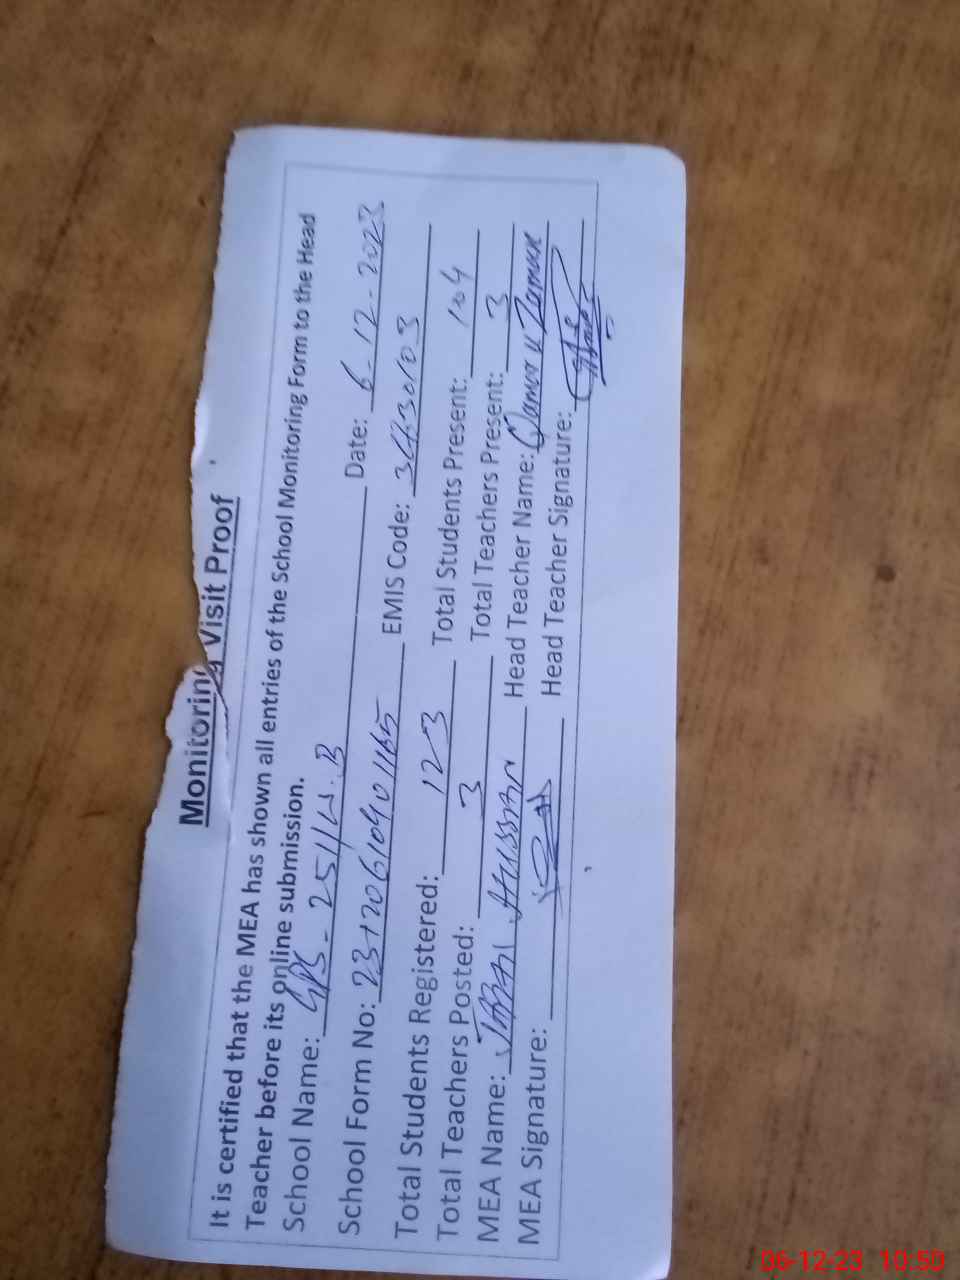 Monitoring Visit Proof
It is certified that the MEA has shown all entries of the School Monitoring Form to the Head
Teacher before its online submission.
School Name: GPS - 251/W.B Date: 6-12-2023
School Form No: EMIS Code:
Total Students Registered: 123 Total Students Present: 104
Total Teachers Posted: 3 Total Teachers Present: 3
MEA Name: Hussain Head Teacher Name: Qamar u Zaman
MEA Signature: Head Teacher Signature:
06-12-23 10:50